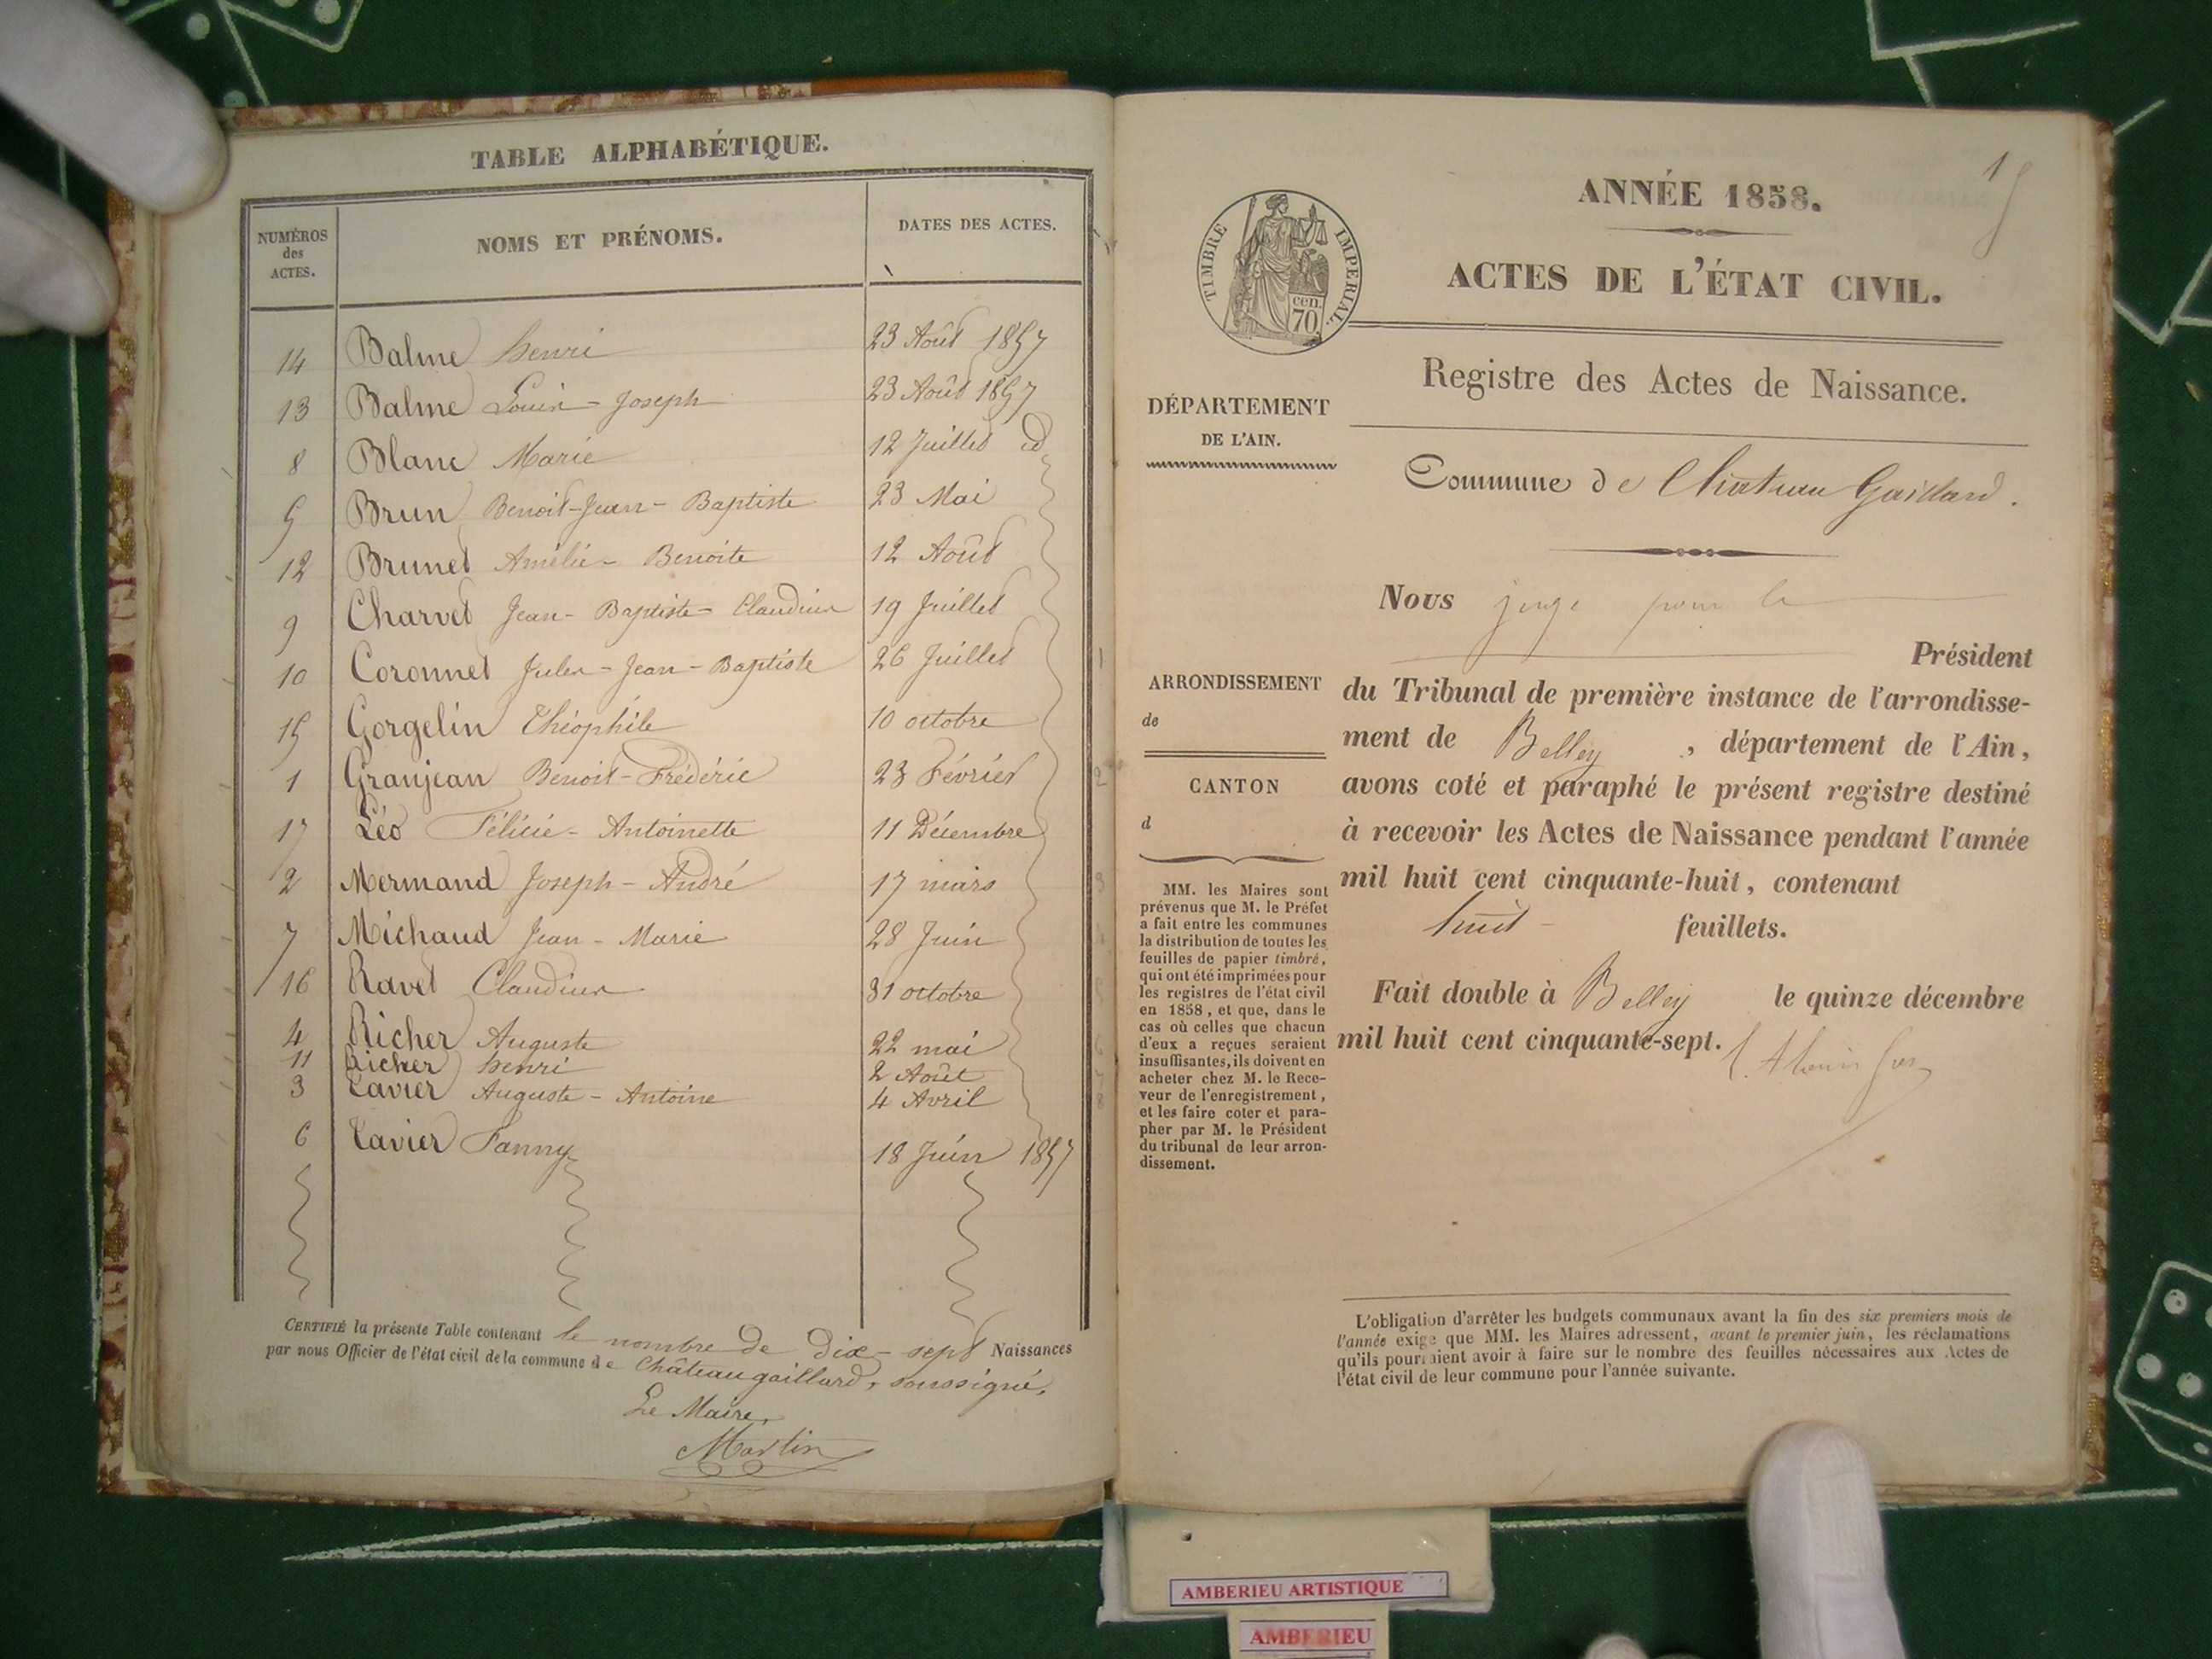 TABLE ALPHABÉTIQUE.
NUMÉROS des ACTES. NOMS ET PRÉNOMS. DATES DES ACTES.
14 Balme henri 23 Août 1857
13 Balme Louis-Joseph 23 Août 1857
8 Blanc Marie 12 Juillet id
5 Brun Benoit-Jean-Baptiste 23 Mai
12 Brunet Amélie-Benoite 12 Août
9 Charvet Jean-Baptiste-Claudius 19 Juillet
10 Coronnet Jules-Jean-Baptiste 26 Juillet
15 Gorgelin Théophile 10 octobre
1 Granjean Benoit-Frédéric 23 Février
17 Léo Félicie-Antoinette 11 Décembre
2 Mermand Joseph-André 17 mars
7 Michaud Jean-Marie 28 Juin
16 Ravet Claudius 31 octobre
4 Richer Auguste 22 mai
11 Richer henri 2 Août
3 Xavier Auguste-Antoine 4 Avril
6 Xavier Fanny 18 Juin 1857
CERTIFIÉ la présente Table contenant le nombre de Dix-sept Naissances
par nous Officier de l'état civil de la commune de Châteaugaillard, soussigné,
Le Maire,
Martin
15
ANNÉE 1858.
ACTES DE L'ÉTAT CIVIL.
TIMBRE IMPÉRIAL.
cen.
70
Registre des Actes de Naissance.
DÉPARTEMENT
DE L'AIN.
Commune de Chateau Gaillard.
Nous juge pour le
Président
ARRONDISSEMENT
de
du Tribunal de première instance de l'arrondisse-
ment de Belley, département de l'Ain,
CANTON
d
avons coté et paraphé le présent registre destiné
à recevoir les Actes de Naissance pendant l'année
mil huit cent cinquante-huit, contenant
huit feuillets.
Fait double à Belley le quinze décembre
mil huit cent cinquante-sept.
MM. les Maires sont
prévenus que M. le Préfet
a fait entre les communes
la distribution de toutes les
feuilles de papier timbré,
qui ont été imprimées pour
les registres de l'état civil
en 1858, et que, dans le
cas où celles que chacun
d'eux a reçues seraient
insuffisantes, ils doivent en
acheter chez M. le Rece-
veur de l'enregistrement,
et les faire coter et para-
pher par M. le Président
du tribunal de leur arron-
dissement.
L'obligation d'arrêter les budgets communaux avant la fin des six premiers mois de
l'année exige que MM. les Maires adressent, avant le premier juin, les réclamations
qu'ils pourraient avoir à faire sur le nombre des feuilles nécessaires aux Actes de
l'état civil de leur commune pour l'année suivante.
AMBERIEU ARTISTIQUE
AMBERIEU